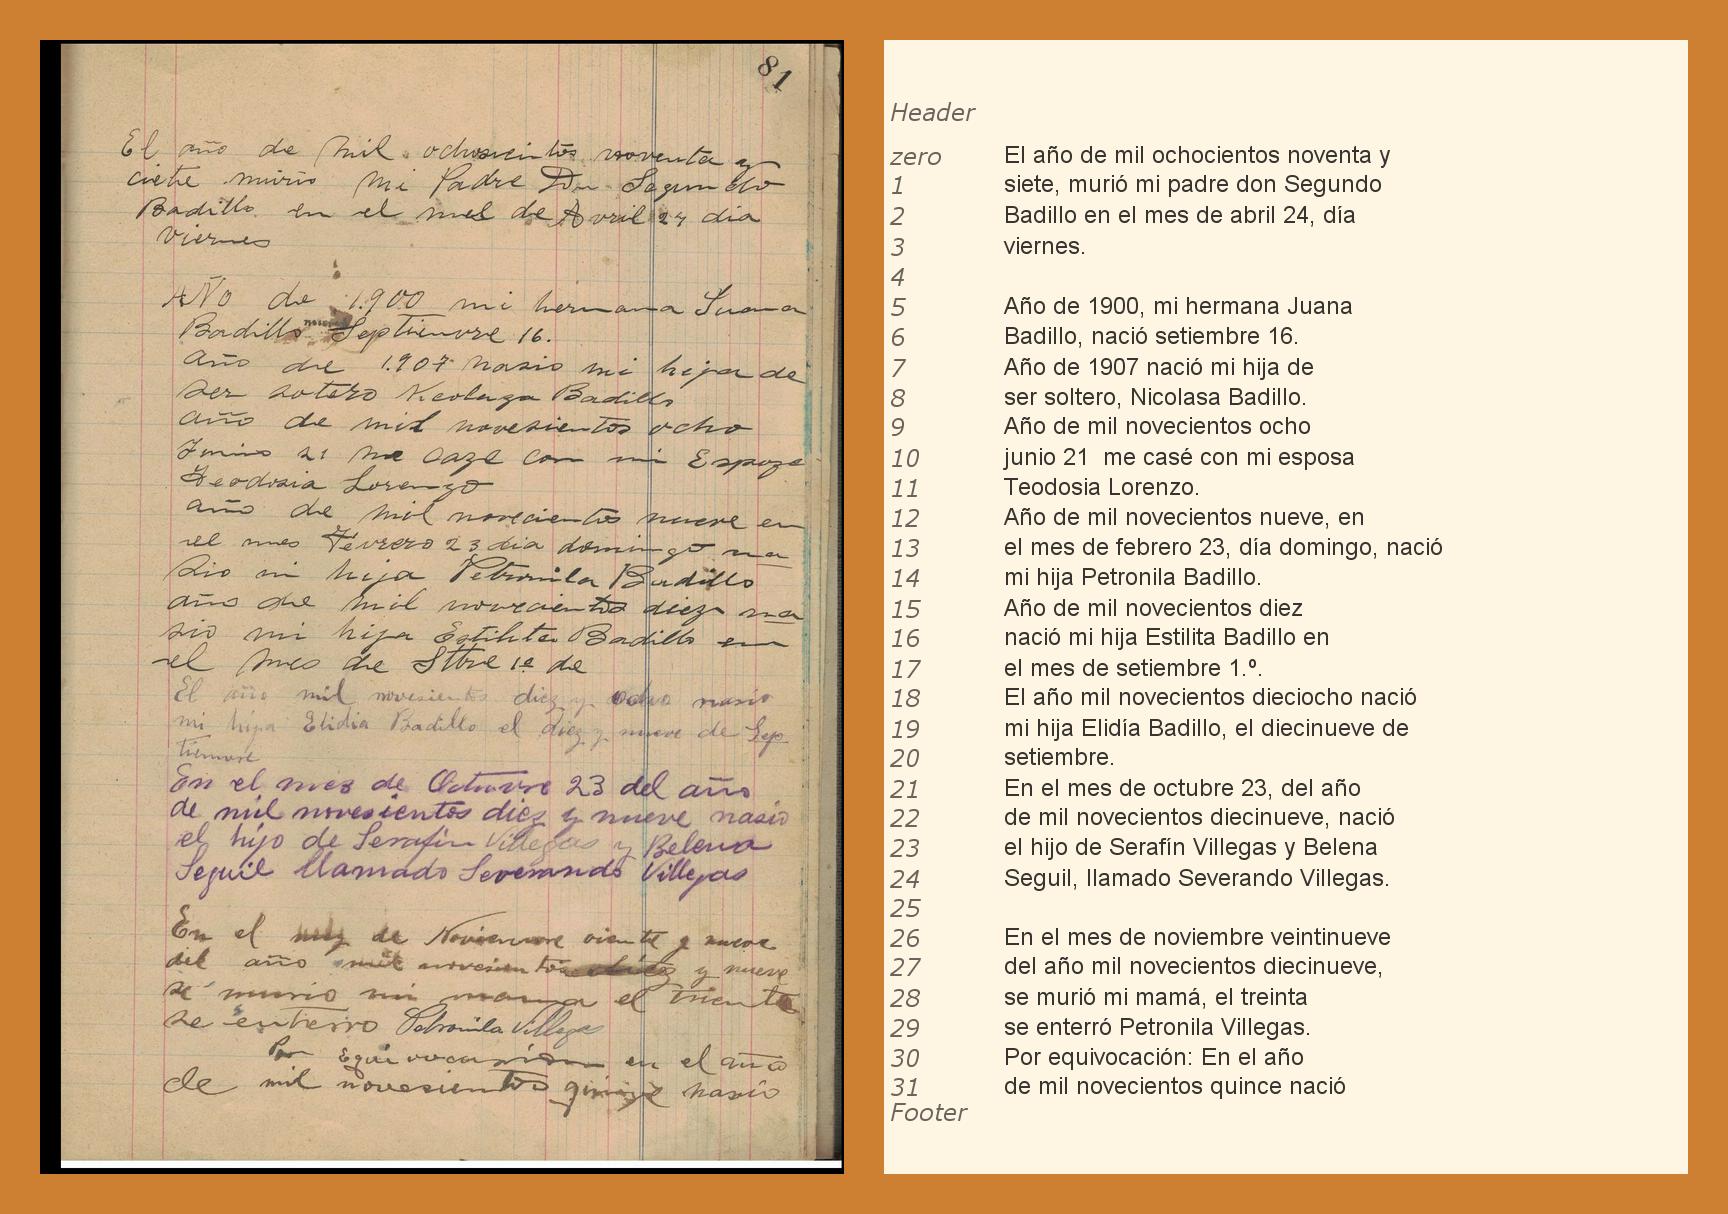 81
El año de mil ochosientos noventa y
ciete murio mi Padre Don Segundo
Badillo en el mes de Avril 24 dia
viernes
Año de 1.900 mi hermana Juana
Badillo Septiemvre 16.
año de 1.907 nasio mi hija de
ser sotero Nicolaza Badillo
año de mil novesientos ocho
Junio 21 me caze con mi Espoza
Teodosia Lorenzo
año de mil novecientos nueve en
el mes Fevrero 23 dia domingo na
sio mi hija Petronila Badillo
año de mil novecientos diez na
sio mi hija Estilita Badillo en
el mes de Stbre 1º de
El año mil novesientos diez y ocho nasio
mi hija Elidia Badillo el diez y nueve de Sep
tiemvre
En el mes de Octuvre 23 del año
de mil novesientos diez y nueve nasio
el hijo de Serafin Villegas y Belena
Seguil llamado Severando Villegas
En el mez de Noviemvre viente y nueve
del año mil novesientos diez y nueve
se murio mi mama el trienta
se enterro Petronila Villegas
Por Equivocasion en el año
de mil novesientos quinze nasio
Header
zero El año de mil ochocientos noventa y
1 siete, murió mi padre don Segundo
2 Badillo en el mes de abril 24, día
3 viernes.
4
5 Año de 1900, mi hermana Juana
6 Badillo, nació setiembre 16.
7 Año de 1907 nació mi hija de
8 ser soltero, Nicolasa Badillo.
9 Año de mil novecientos ocho
10 junio 21 me casé con mi esposa
11 Teodosia Lorenzo.
12 Año de mil novecientos nueve, en
13 el mes de febrero 23, día domingo, nació
14 mi hija Petronila Badillo.
15 Año de mil novecientos diez
16 nació mi hija Estilita Badillo en
17 el mes de setiembre 1.º.
18 El año mil novecientos dieciocho nació
19 mi hija Elidía Badillo, el diecinueve de
20 setiembre.
21 En el mes de octubre 23, del año
22 de mil novecientos diecinueve, nació
23 el hijo de Serafín Villegas y Belena
24 Seguil, llamado Severando Villegas.
25
26 En el mes de noviembre veintinueve
27 del año mil novecientos diecinueve,
28 se murió mi mamá, el treinta
29 se enterró Petronila Villegas.
30 Por equivocación: En el año
31 de mil novecientos quince nació
Footer